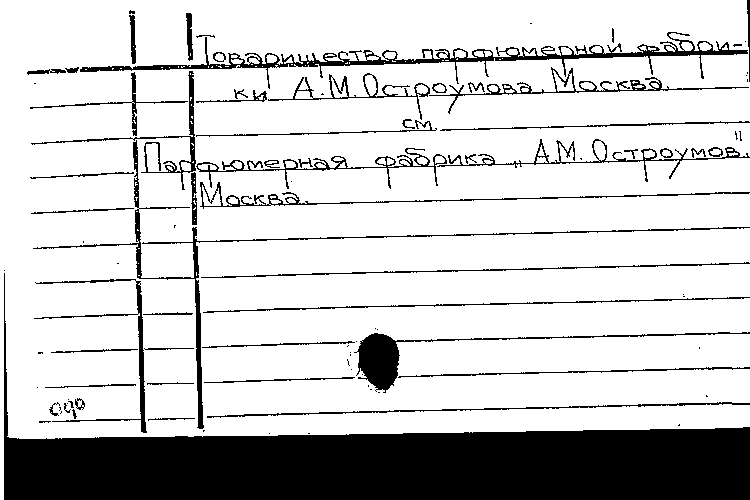 Товарищество парфюмерной фабри-
ки А.М. Остроумова. Москва.
см.
Парфюмерная фабрика „А.М. Остроумов".
Москва.